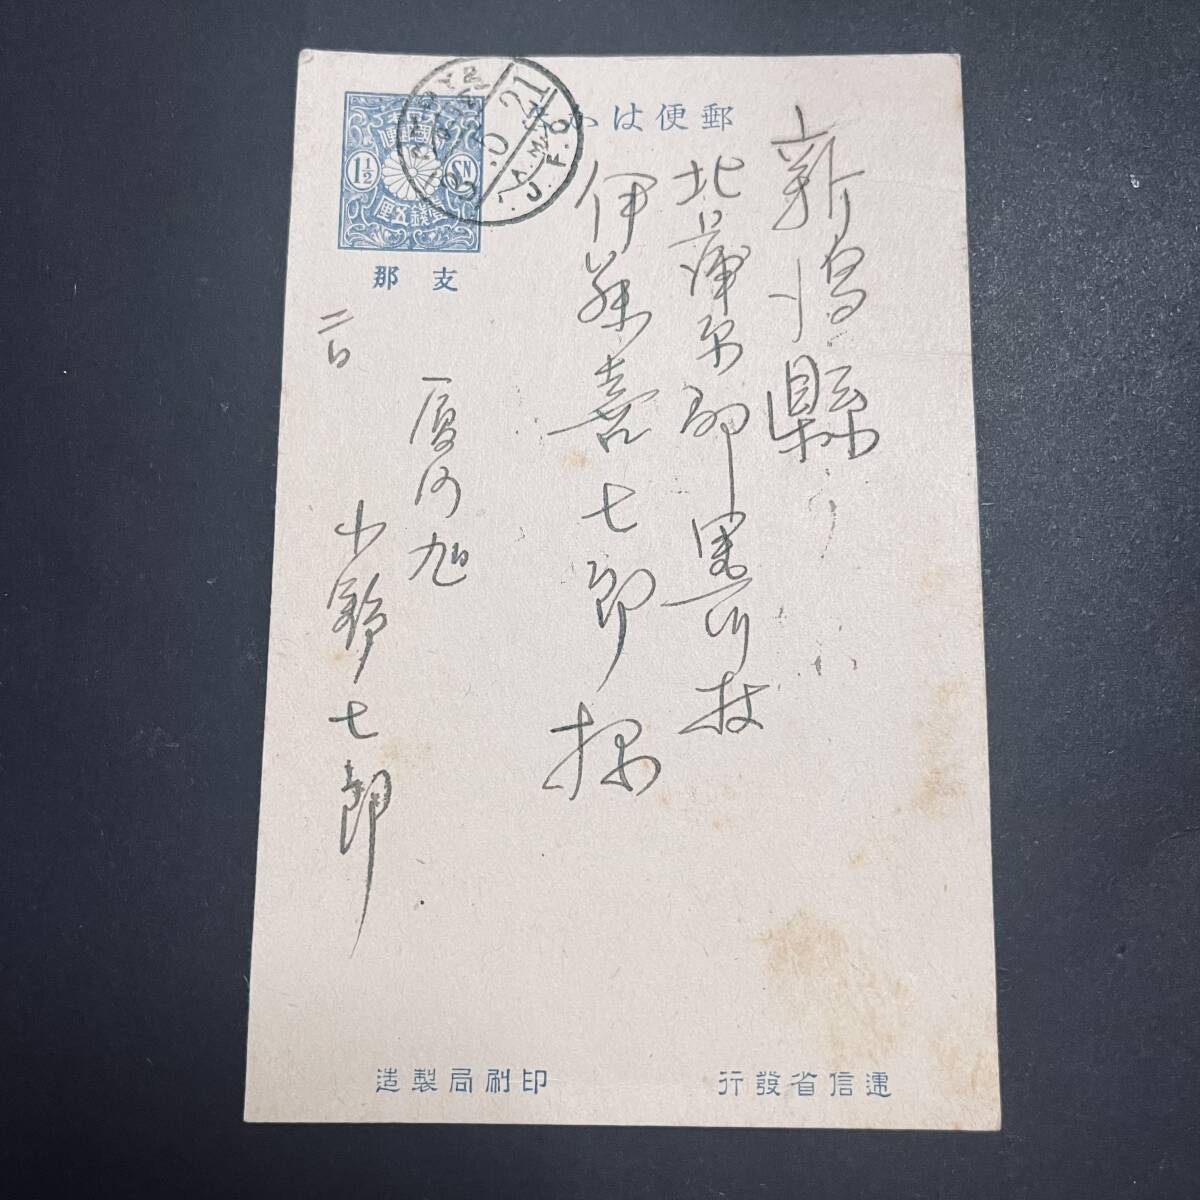 郵便はか
1½
SN
壹錢五厘
支那
21
A.M.
J.P.O
新潟縣
北蒲原郡黒川村
伊藤喜七郎様
二日
七郎
遞信省發行
印刷局製造